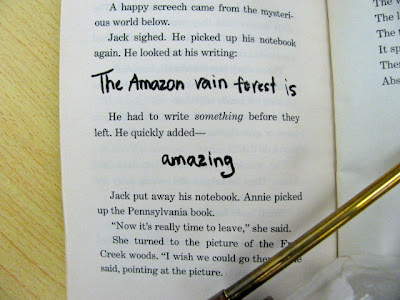 A happy screech came from the mysteri-
ous world below.
Jack sighed. He picked up his notebook
again. He looked at his writing:
The Amazon rain forest is
He had to write something before they
left. He quickly added—
amazing
Jack put away his notebook. Annie picked
up the Pennsylvania book.
"Now it's really time to leave," she said.
She turned to the picture of the
Creek woods. "I wish we could go
said, pointing at the picture.
The
The l
The t
It sp
Ther
Abs